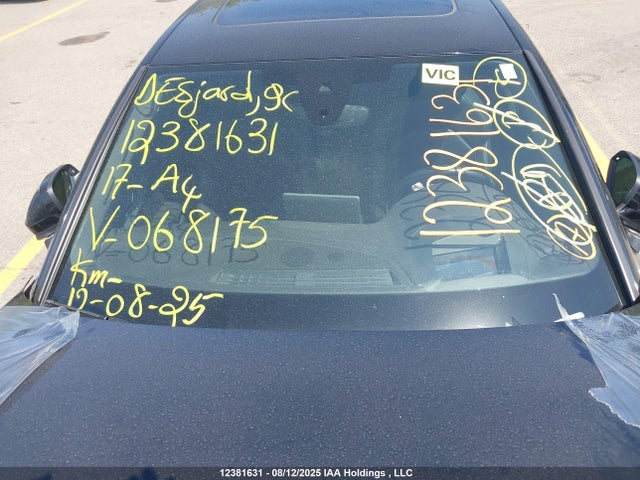 DESjard, gc
12381631
17-A4
V-068175
Km-
12-08-25
VIC
12381631
12381631 - 08/12/2025 IAA Holdings , LLC